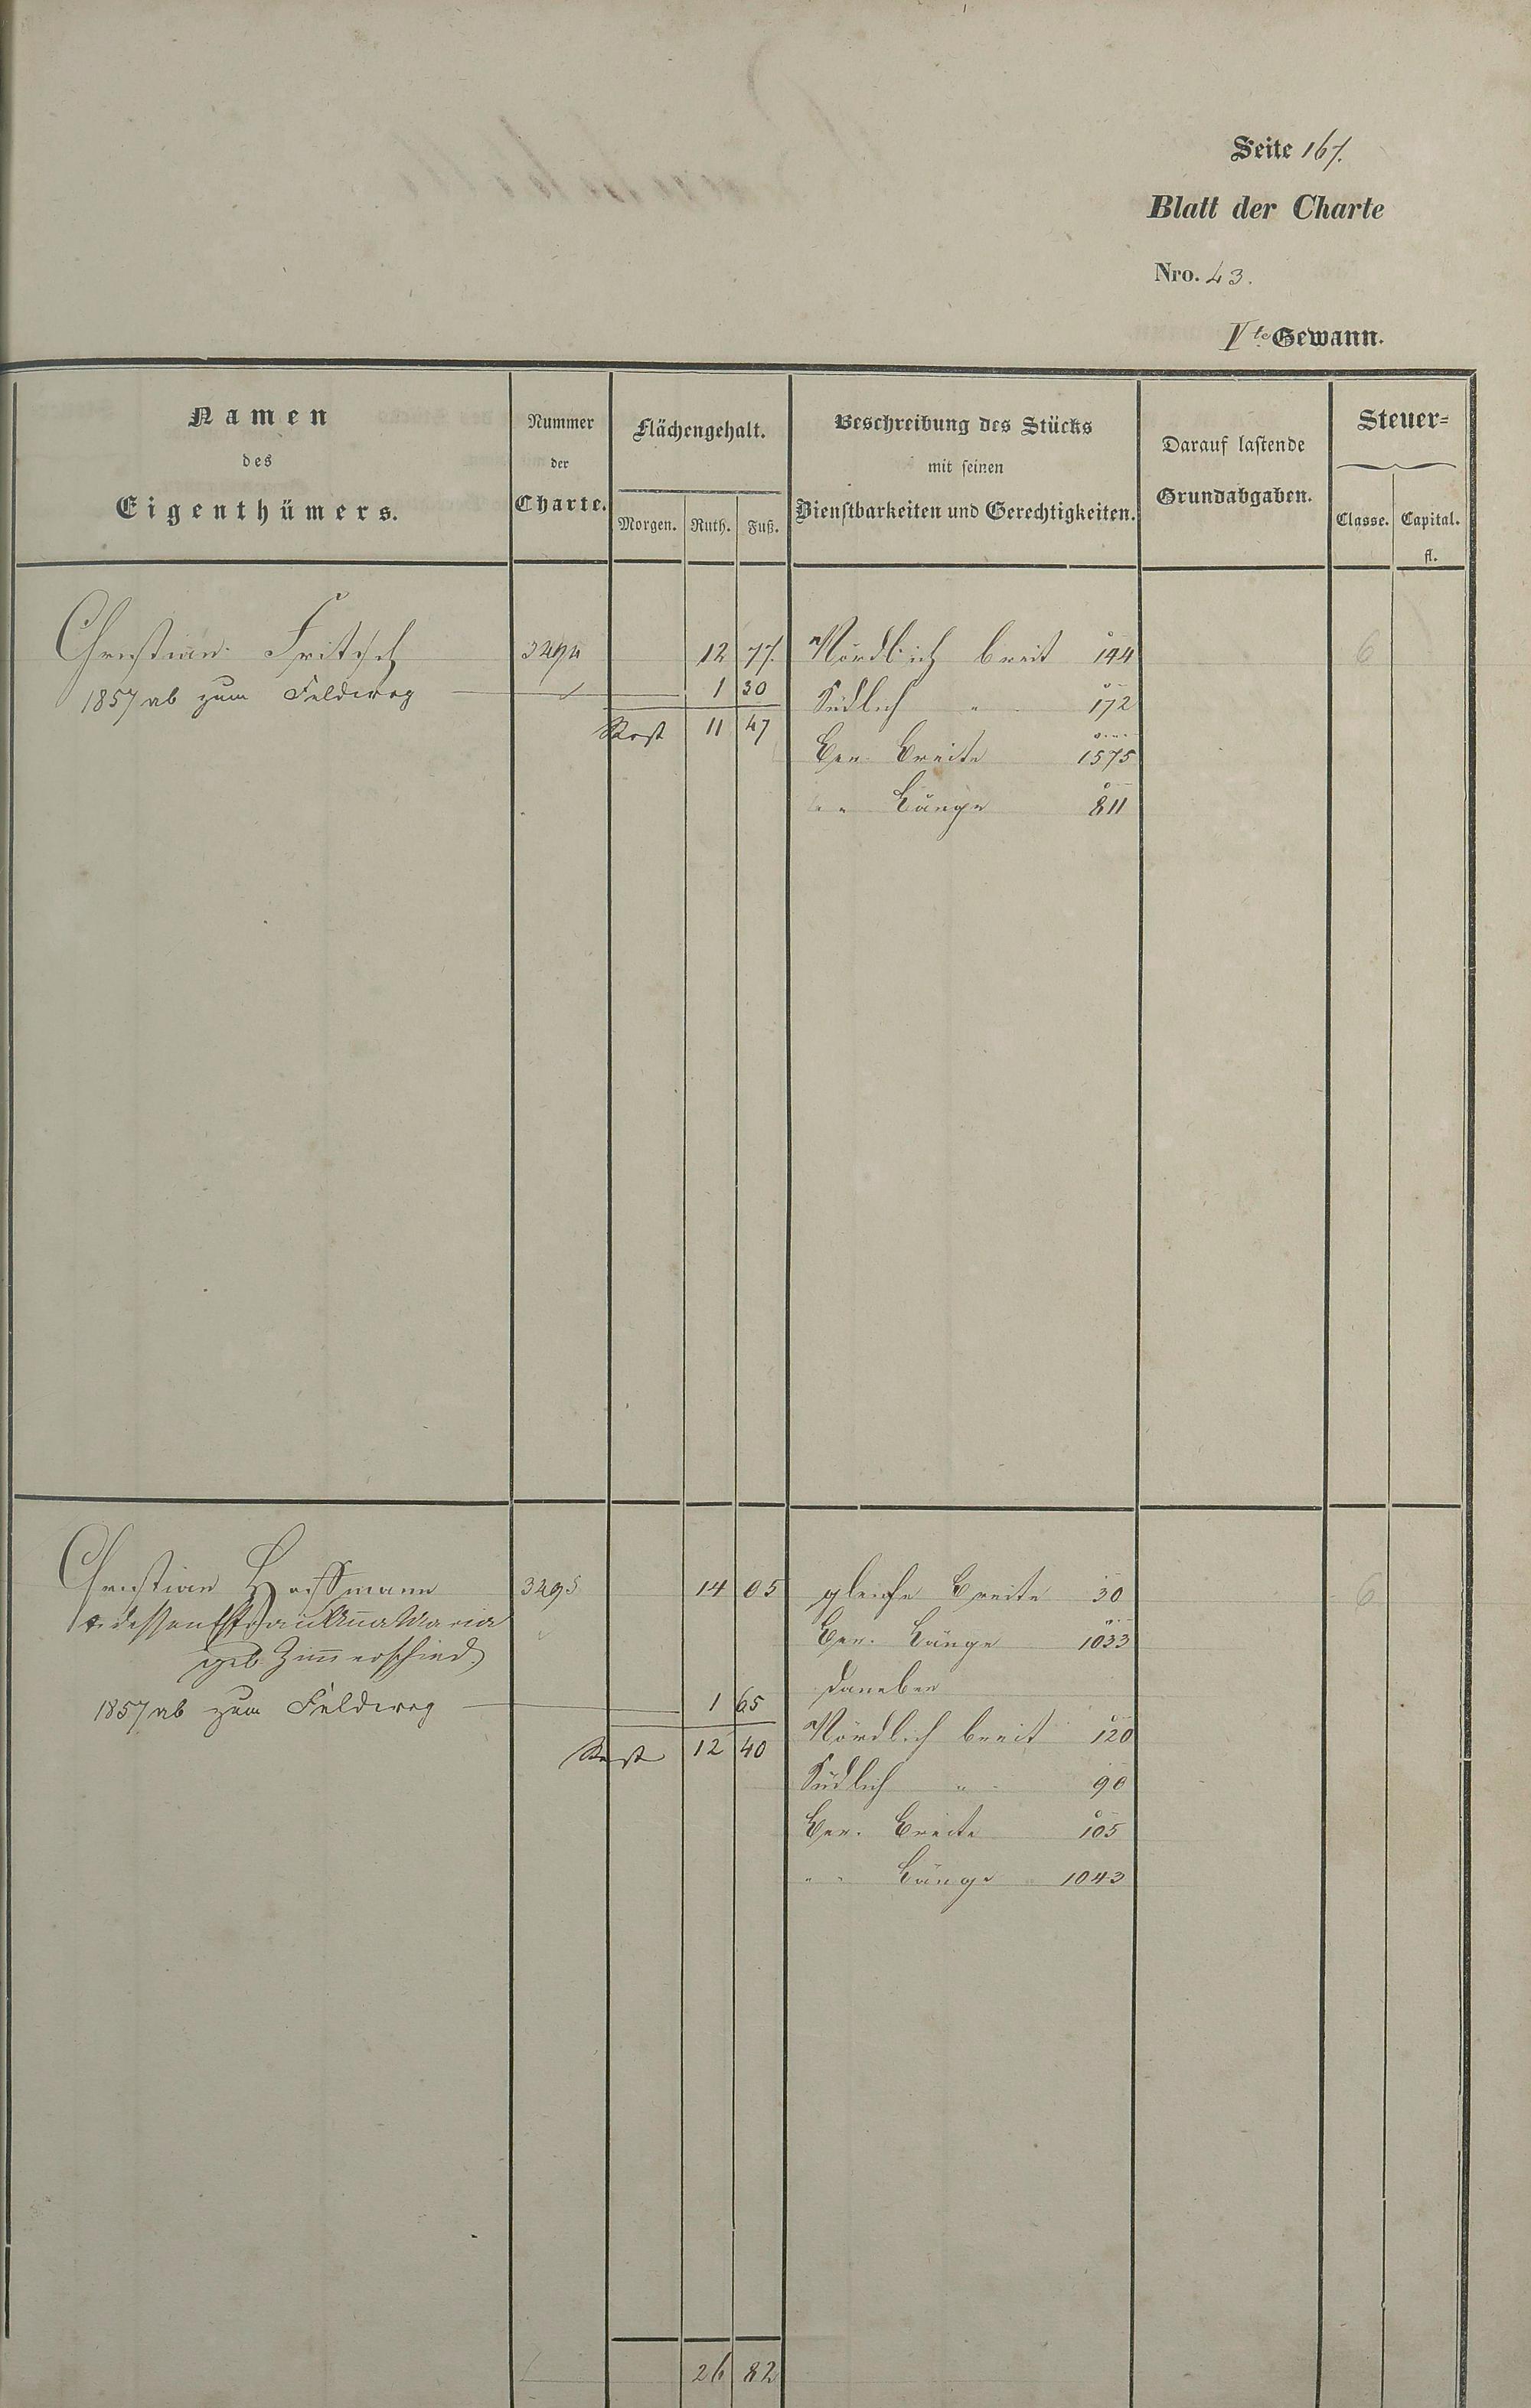 Seite 167.
Blatt der Charte
Nro. 43.
Vte Gewann.
Namen
des
Eigenthümers.
Nummer
der
Charte.
Flächengehalt.
Morgen. Ruth. Fuß.
Beschreibung des Stücks
mit seinen
Dienstbarkeiten und Gerechtigkeiten.
Darauf lastende
Grundabgaben.
Steuer=
Classe. Capital.
fl.
Christian Fritsch 3294 12 77. Nördlich breit 144 6
1857 ab zum Feldweg 1 30 Südlich " 172
Rest 11 47
Ger. Breite 1575
" " Länge 811
Christian Hoffmann 3295 14 05 gleiche Breite 30 6
& dessen Ehefrau Anna Maria
Ger. Länge 1033
geb. Zimmerschied
daneben
1857 ab zum Feldweg 1 65
Nördlich breit 120
Rest 12 40
Südlich " 90
Ger. Breite 105
" " Länge 1043
26 82